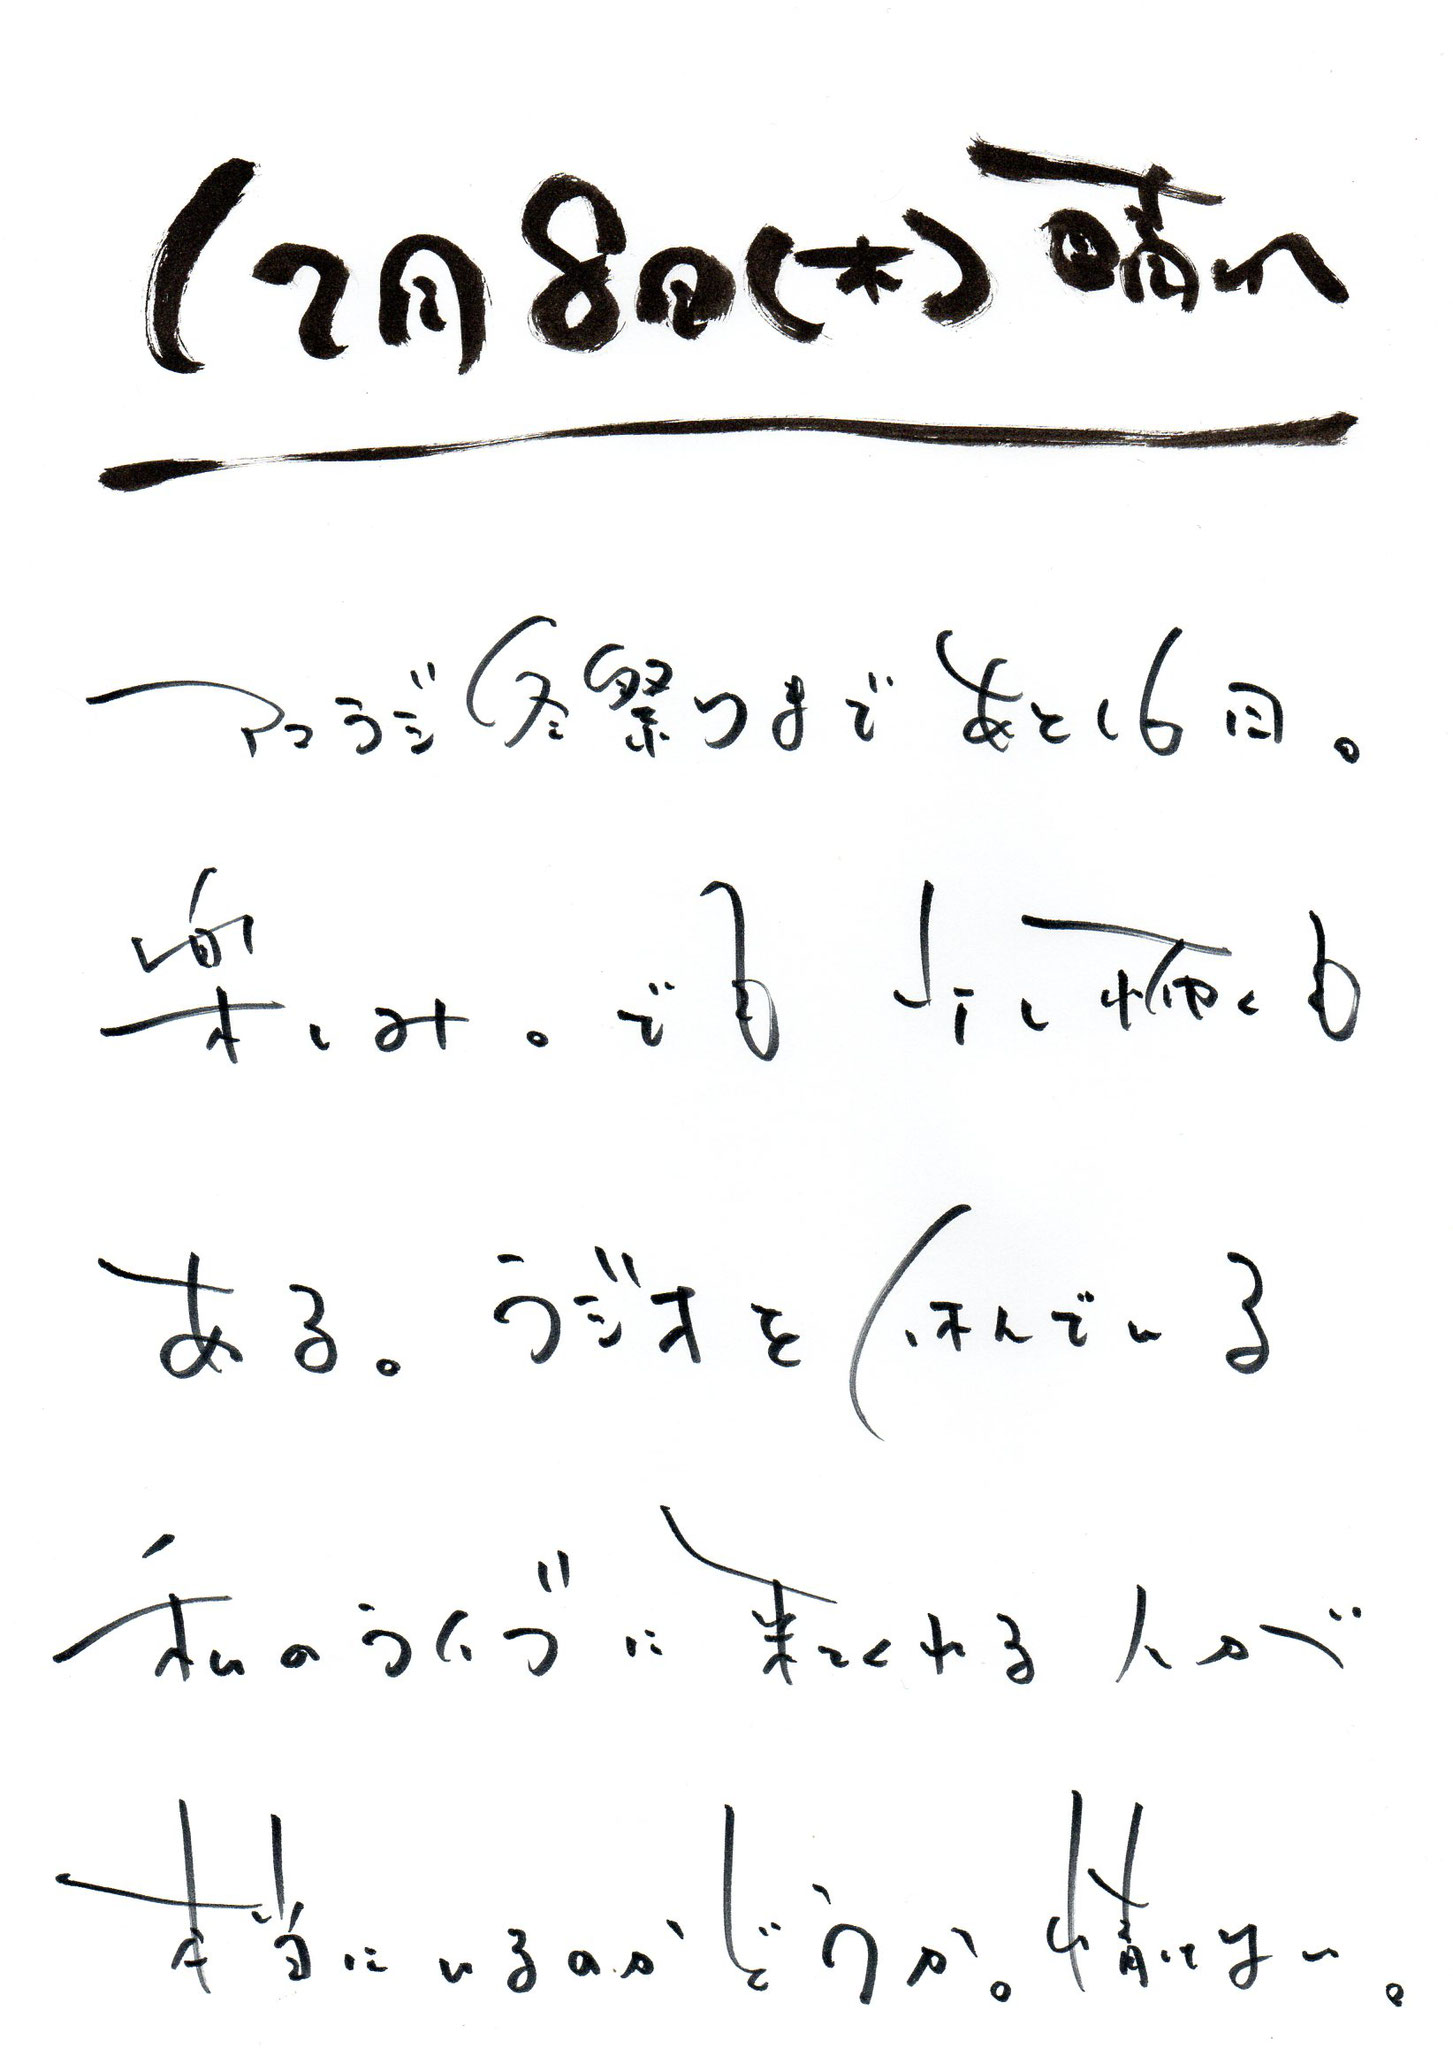 12月8日(木)晴れ
アコラジ冬祭りまであと16日。
楽しみ。でも少し怖くも
ある。ラジオを休んでいる
私のライブに来てくれる人が
本当にいるのかどうか。情けない。